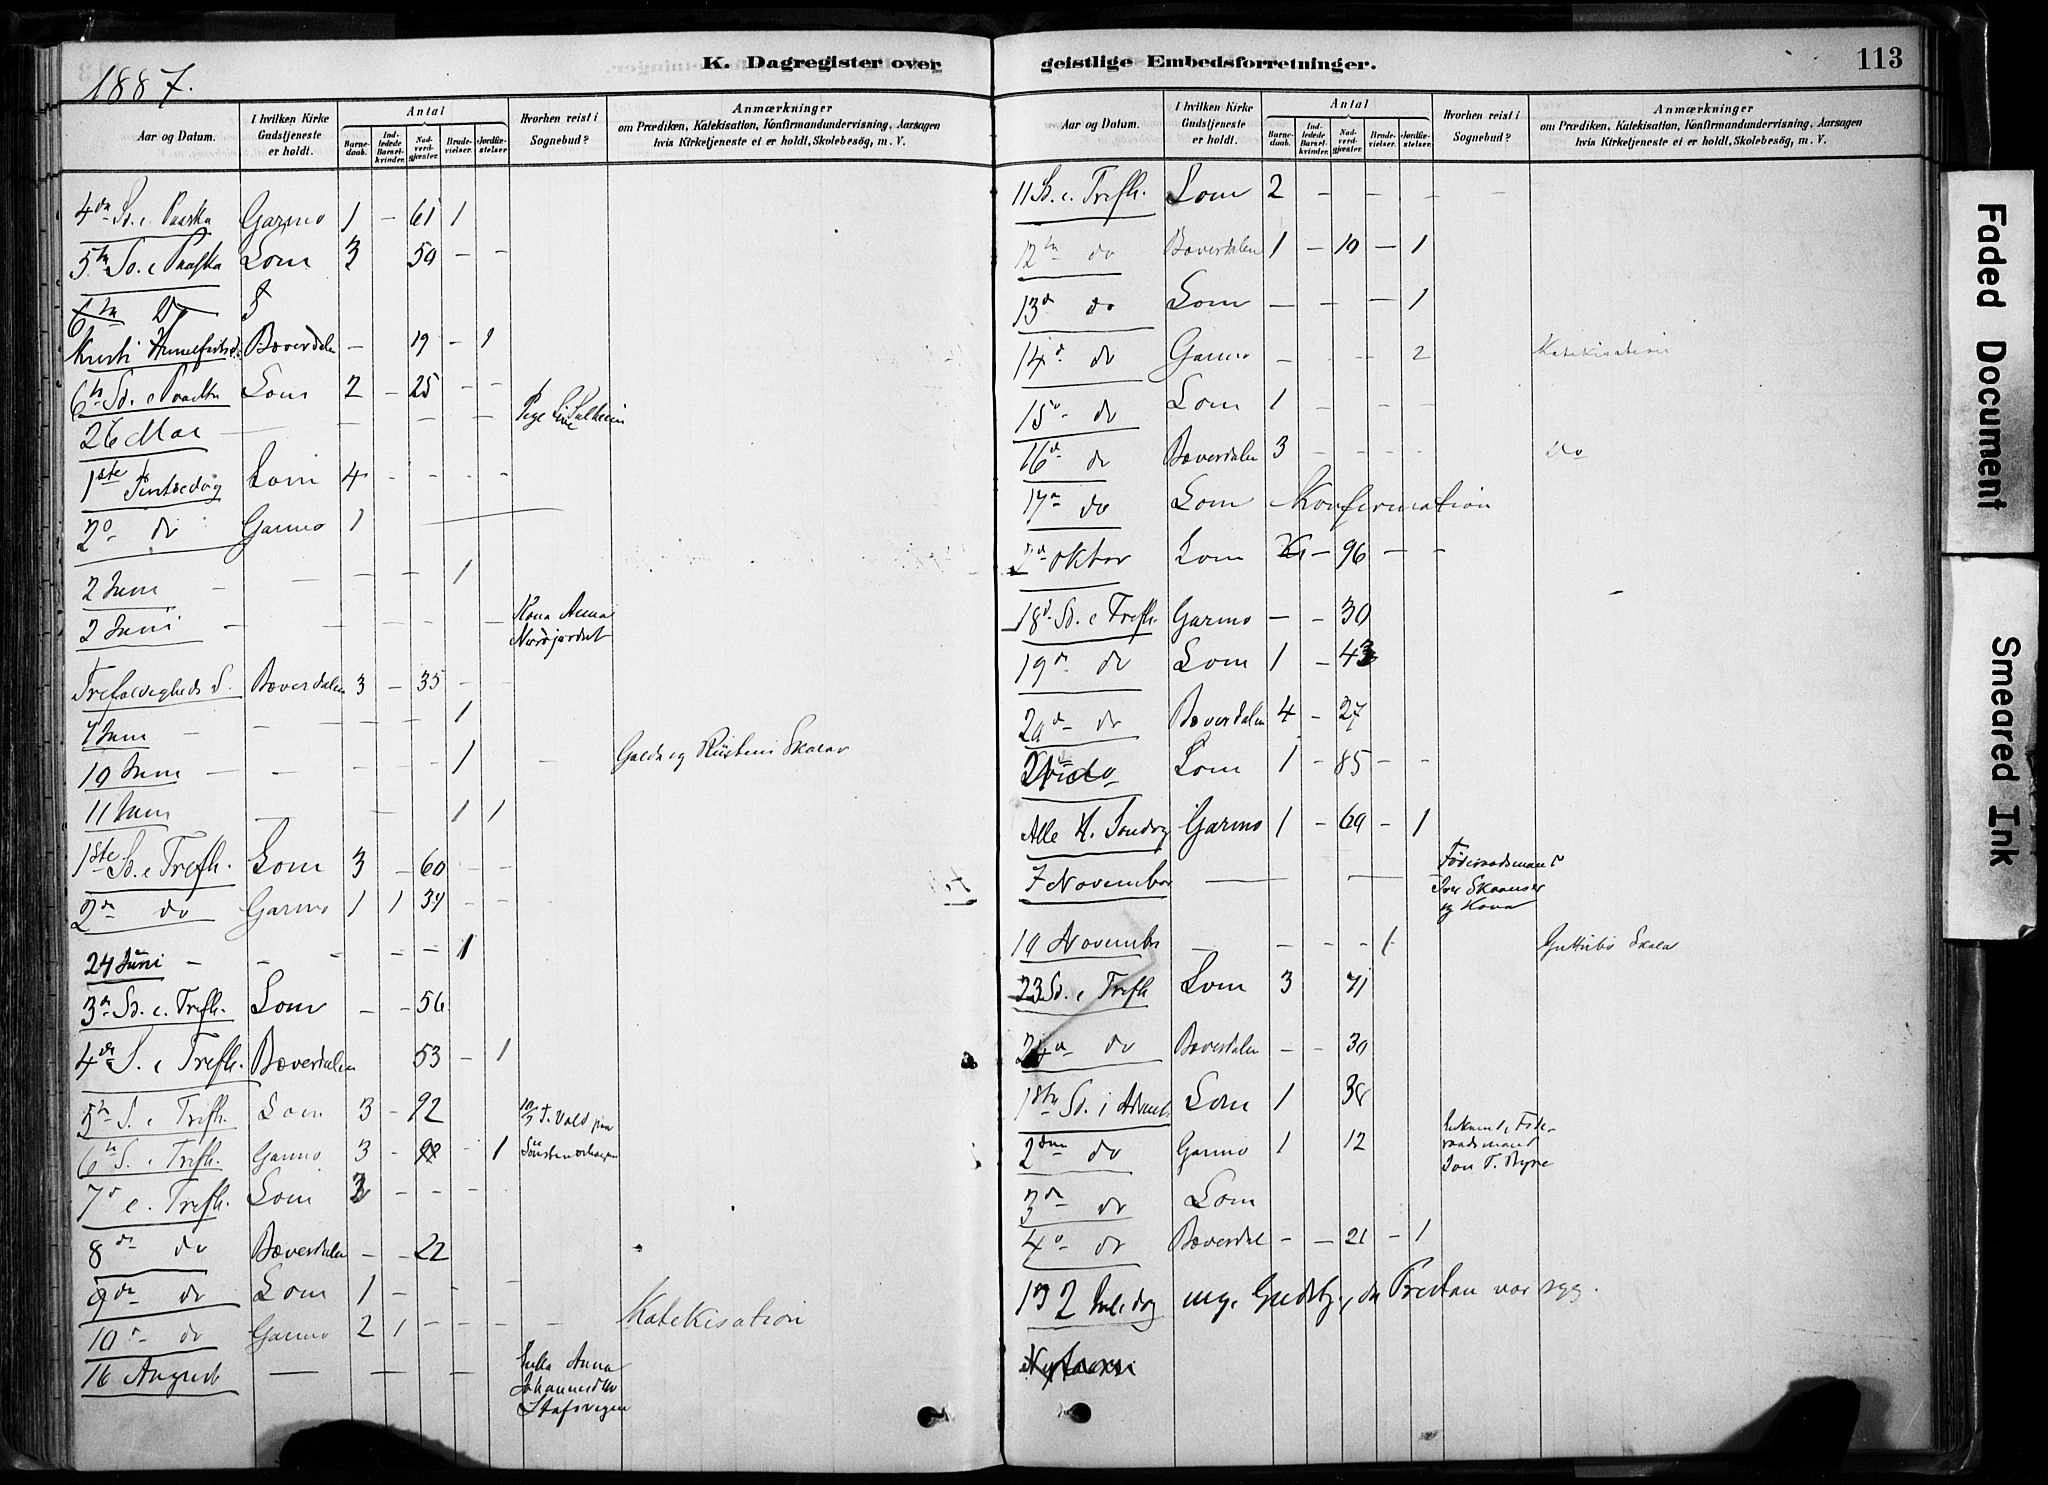 1887.
K. Dagregister over
Aar og Datum.
I hvilken Kirke Gudstjeneste er holdt.
Antal
Barne-daab.
Ind-ledede Barsel-kvinder.
Nad-verd-gjæster.
Brude-vielser.
Jordfæ-stelser.
Hvorhen reist i Sognebud?
Anmærkninger
om Prædiken, Katekisation, Konfirmandundervisning, Aarsagen
hvis Kirketjeneste ei er holdt, Skolebesøg, m. V.
4de Sø. e Paaske Garmo 1 - 61 1
5te Sø. e Paaske Lom 3 50 - -
6te Do
Kristi Himmelfartsd. Bæverdalen - 19 - 1
6te Sø. e Paaske Lom 2 - 25 - -
26 Mai - - - - Pige Siri Sulheim
1ste Pintsedag Lom 4 - - - -
2d do Garmo 1
2 Juni - - - - 1
2 Juni - - - - Kona Anna
Trefoldigheds S. Bæverdalen 3 - 35 - -
7 Juni - - - - - 1
10 Juni - - - - - 1 - Galde og Skolar
11 Juni - - 1 1
1ste Sø. e Trefh. Lom 3 - 60 - -
2de do Garmo 1 1 34 - -
24 Juni - - - - - 1
3de Sø. e. Trefh. Lom - - 56
4de S. e Trefh. Bæverdalen 53 - 1
5te S. e Trefh. Lom 3 - 92
6te S. e Trefh. Garmo 3 - - 1
7de e. Trefh. Lom 3 - - -
8de do Bæverdalen - - 22
9de do Lom 1 - - -
10de do Garmo 2 1 - - - - Katekisation
16 August - - - - Enke Anna
Johannesdtr
Stafsvegen
geistlige Embedsforretninger.
113
Aar og Datum.
I hvilken Kirke Gudstjeneste er holdt.
Antal
Barne-daab.
Ind-ledede Barsel-kvinder.
Nad-verd-gjæster.
Brude-vielser.
Jordfæ-stelser.
Hvorhen reist i Sognebud?
Anmærkninger
om Prædiken, Katekisation, Konfirmandundervisning, Aarsagen
hvis Kirketjeneste ei er holdt, Skolebesøg, m. V.
11 Sø. e. Trefh. Lom 2 - - - - -
12te do Bæverdalen 1 - 10 - 1
13de do Lom - - - 1
14de do Garmo - - - 2 Katekisation
15de do Lom 1 - - - -
16de do Bæverdalen 3 - - - - Do
17de do Lom Konfirmation
2den oktbr Lom - 96 - -
18de Sø. e Trefh. Garmo - - 30
19de do Lom 1 - 43
20de do Bæverdalen 4 - 27
21 do Lom 1 - 85 - -
Alle H. Søndag Garmo 1 - 69 - 1
7 November - - - - Føderaadsmand
Iver
og Kona
19 Novembr - - - - - 1 Skolar
23 Sø. e Trefh Lom 3 71
24de do Bæverdalen - - 30
1ste Sø. i Advent Lom 1 38
2den do Garmo 1 12 Føde-
raadsmand
Jon T.
3de do Lom
4de do Bæverdal - - 21 - 1
1 og 2 Juledag ing. Gudstj., da Presten var syg.
Faded Document
Smeared Ink